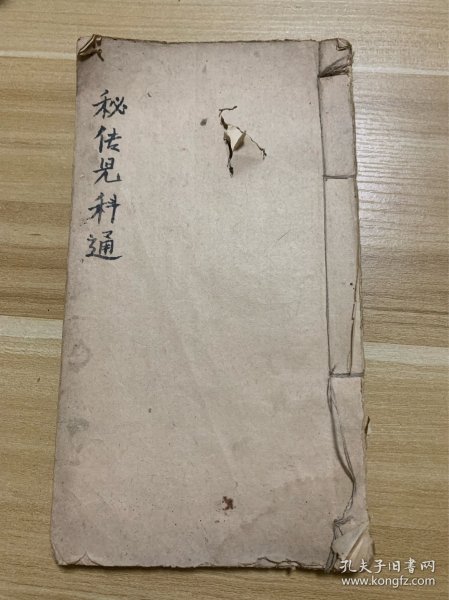 秘传児科通
孔夫子旧书网
www.kongfz.com